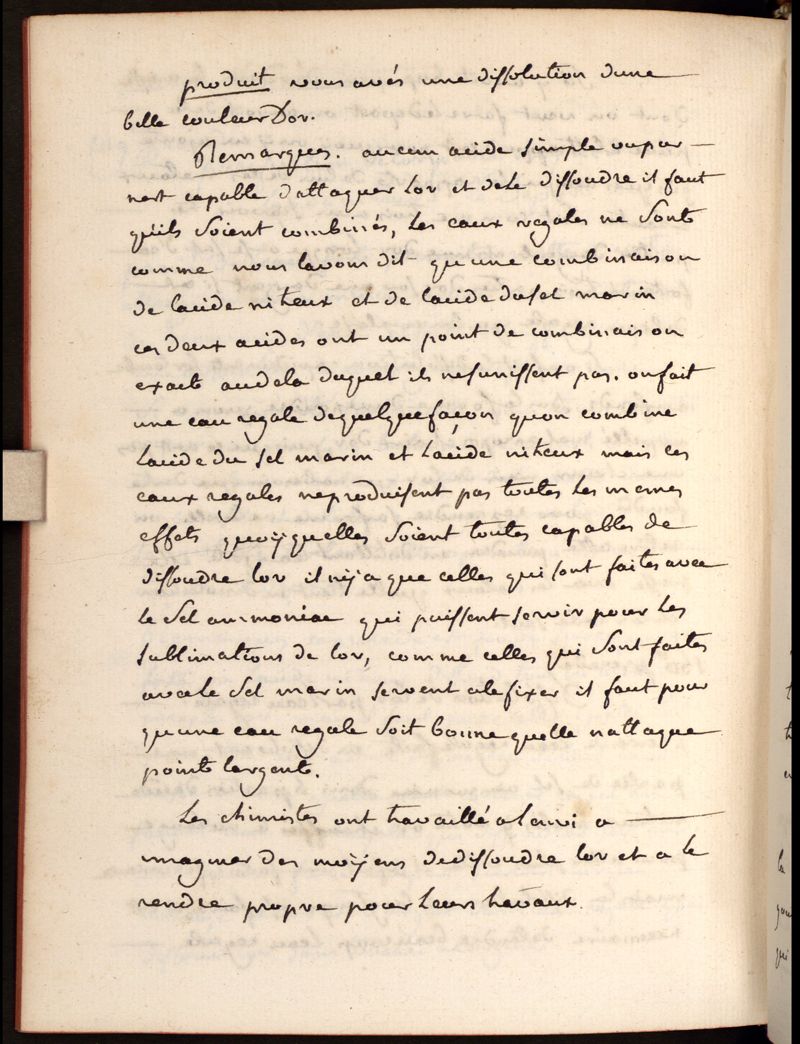 produit vous avés une dissolution dune
belle couleur Dor.
Remarques. aucun acide simple ou pur
nest capable dattaquer Lor et dele dissoudre il faut
quils soient combinés, Les eaux regales ne sont
comme nous lavons dit qu'une combinaison
de lacide niteux et de lacide dusel marin
ces deux acides ont un point de combinaison
exact audela duquel ils nesunissent pas. onfait
une eau regale dequelquefaçon quon combine
Lacide du sel marin et Lacide niteux mais ces
eaux regales neproduisent pas toutes les memes
effets quoÿquelles soient toutes capables de
dissoudre lor il nÿa que celles qui sont faites avec
le sel ammoniac qui puissent servir pour les
sublimations de lor, comme celles qui sont faites
avec le sel marin servent alefixer il faut pour
quune eau regale soit bonne quelle nattaque
point largent.
Les chimistes ont travaillé a lenvi a
imaginer des moÿens dedissoudre lor et a le
rendre propre pour Leurs travaux.